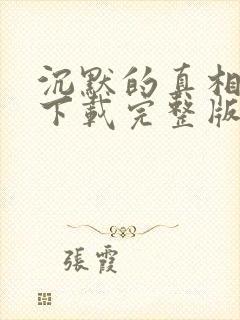 沉默的真相
下載完整版
張霞